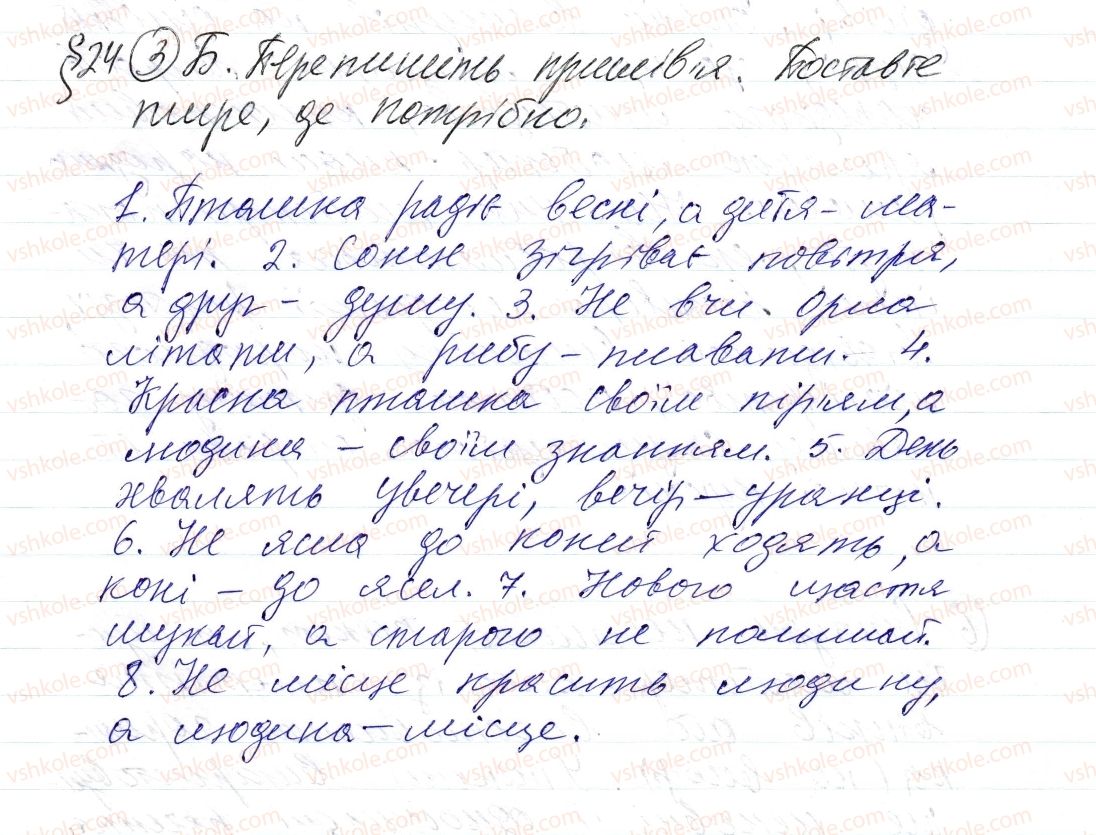 §24 ③ Б. Перепишіть прислів'я. Поставте
тире, де потрібно.
1. Пташка радіє весні, а дитя – ма-
тері. 2. Сонце зігріває повітря,
а друг – душу. 3. Не вчи орла
літати, а рибу – плавати. 4.
Красна пташка своїм пір'ям, а
людина – своїм знанням. 5. День
хвалять увечері, вечір – уранці.
6. Не ясла до коней ходять, а
коні – до ясел. 7. Нового щастя
шукай, а старого не полишай.
8. Не місце красить людину,
а людина – місце.